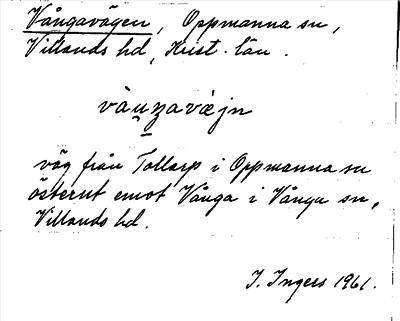 Vångavägen, Oppmanna sn,
Villands hd, Krist. län.
våu̠nzavæjn
väg från Tollarp i Oppmanna sn
österut emot Vånga i Vånga sn,
Villands hd.
I. Ingers 1961.